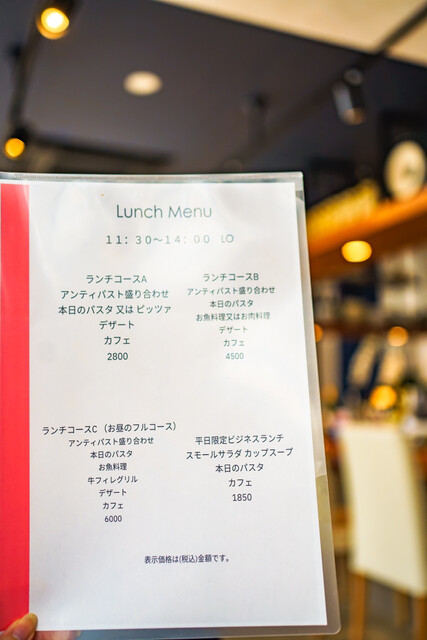 Lunch Menu
11:30〜14:00 LO
ランチコースA
アンティパスト盛り合わせ
本日のパスタ 又は ピッツァ
デザート
カフェ
2800
ランチコースB
アンティパスト盛り合わせ
本日のパスタ
お魚料理又はお肉料理
デザート
カフェ
4500
ランチコースC（お昼のフルコース）
アンティパスト盛り合わせ
本日のパスタ
お魚料理
牛フィレグリル
デザート
カフェ
6000
平日限定ビジネスランチ
スモールサラダ カップスープ
本日のパスタ
カフェ
1850
表示価格は(税込)金額です。